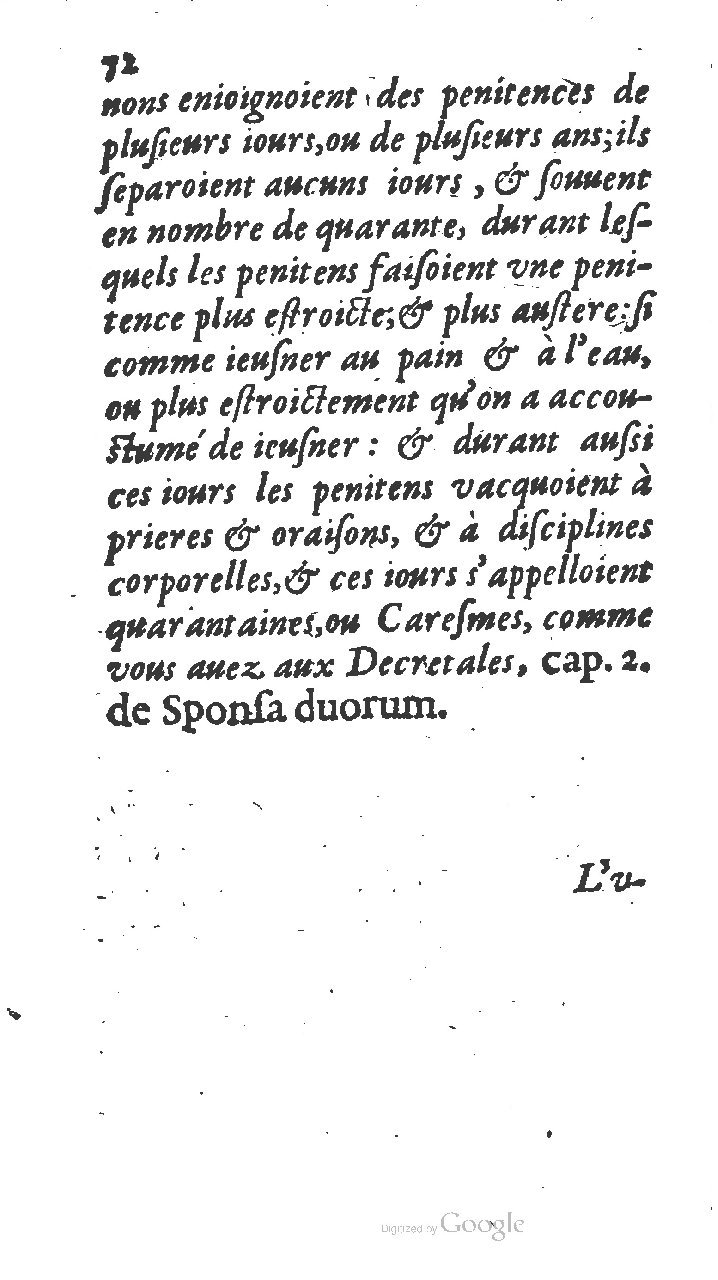 72
nons enioignoient des penitences de
pluſieurs iours,ou de pluſieurs ans;ils
ſeparoient aucuns iours , & ſouuent
en nombre de quarante, durant leſ-
quels les penitens faiſoient vne peni-
tence plus eſtroicte;& plus auſtere:ſi
comme ieuſner au pain & à l'eau,
ou plus eſtroictement qu'on a accou-
ſtumé de ieuſner : & durant auſsi
ces iours les penitens vacquoient à
prieres & oraiſons, & à diſciplines
corporelles,& ces iours s'appelloient
quarantaines,ou Careſmes, comme
vous auez aux Decretales, cap. 2.
de Sponſa duorum.
L'v-
Digitized by Google